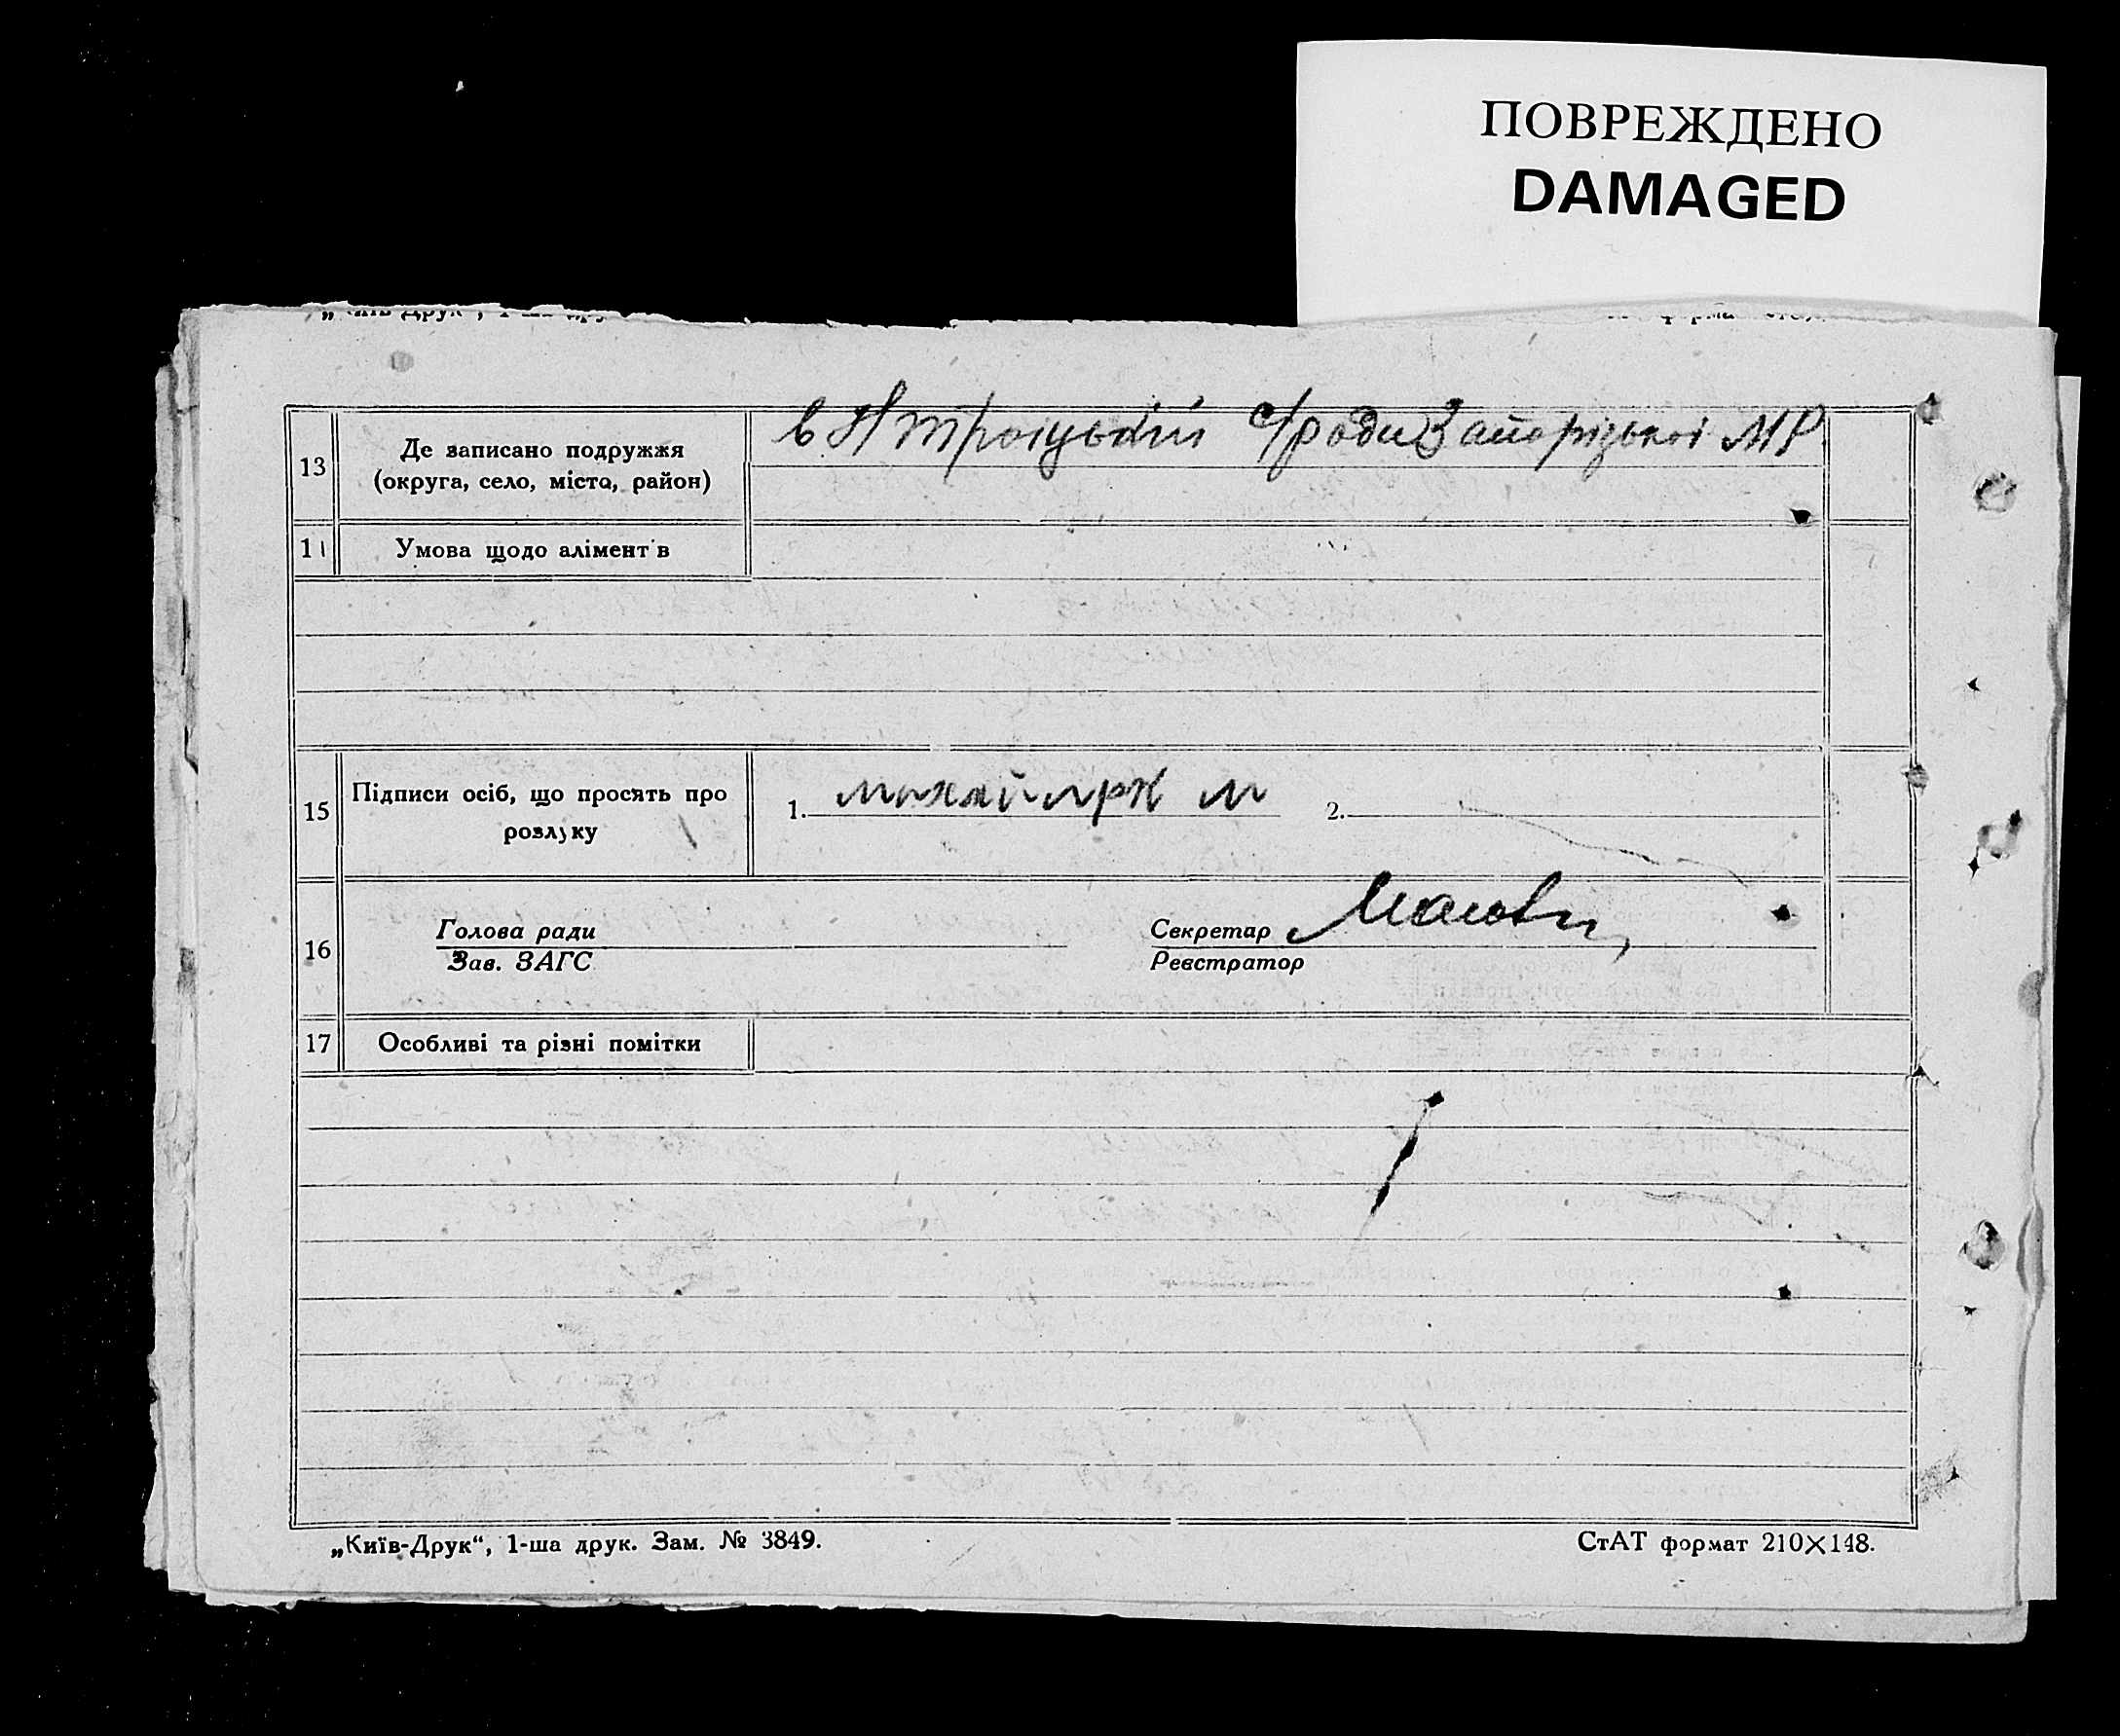 ПОВРЕЖДЕНО
DAMAGED
13
Де записано подружжя
(округа, село, місто, район)
в Н Троіцькій с/ради Запорізькоі МР
Умова щодо алімент в
15
Підписи осіб, що просять про
розлуку
1.
2.
16
Голова ради
Зав. ЗАГС
Секретар
Реєстратор
17
Особливі та різні помітки
„Київ-Друк“, 1-ша друк. Зам. № 3849.
СтАТ формат 210×148.